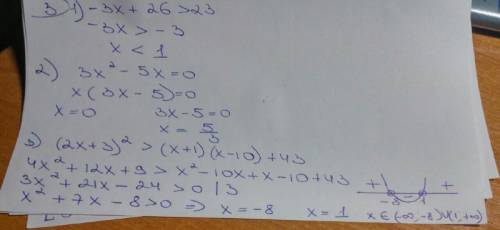 3 1) -3x + 26 > 23
-3x > -3
x < 1
2) 3x² - 5x = 0
x(3x - 5) = 0
x = 0 3x - 5 = 0
x = 5/3
3) (2x+3)² > (x+1)(x-10) + 43
4x² + 12x + 9 > x² - 10x + x - 10 + 43
3x² + 21x - 24 > 0 | 3
x² + 7x - 8 > 0 => x = -8 x = 1 x ∈ (-∞, -8) ∪ (1, +∞)
+ -8 - 1 +